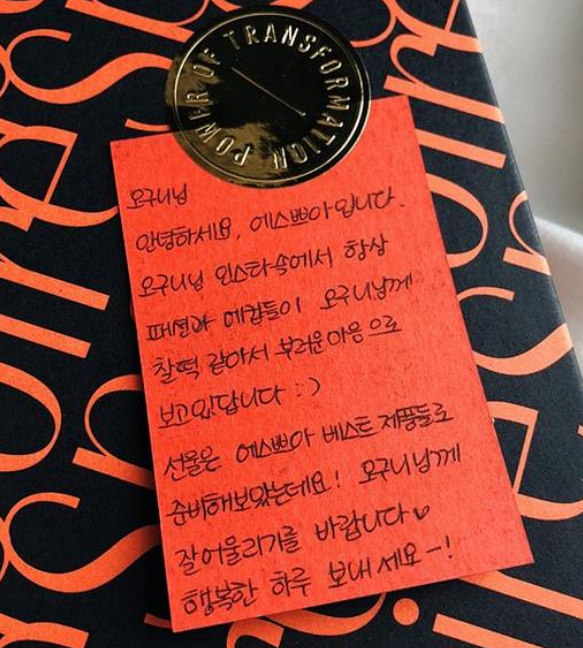 POWER OF TRANSFORMATION
오구니님
안녕하세요, 에스쁘아입니다.
오구니님 인스타속에서 항상
패션과 메컵들이 오구니님께
찰떡 같아서 부러운마음으로
보고있답니다 :)
선물은 에스쁘아 베스트 제품들로
준비해보았는데요! 오구니님께
잘어울리기를 바랍니다♥
행복한 하루 보내세요-!